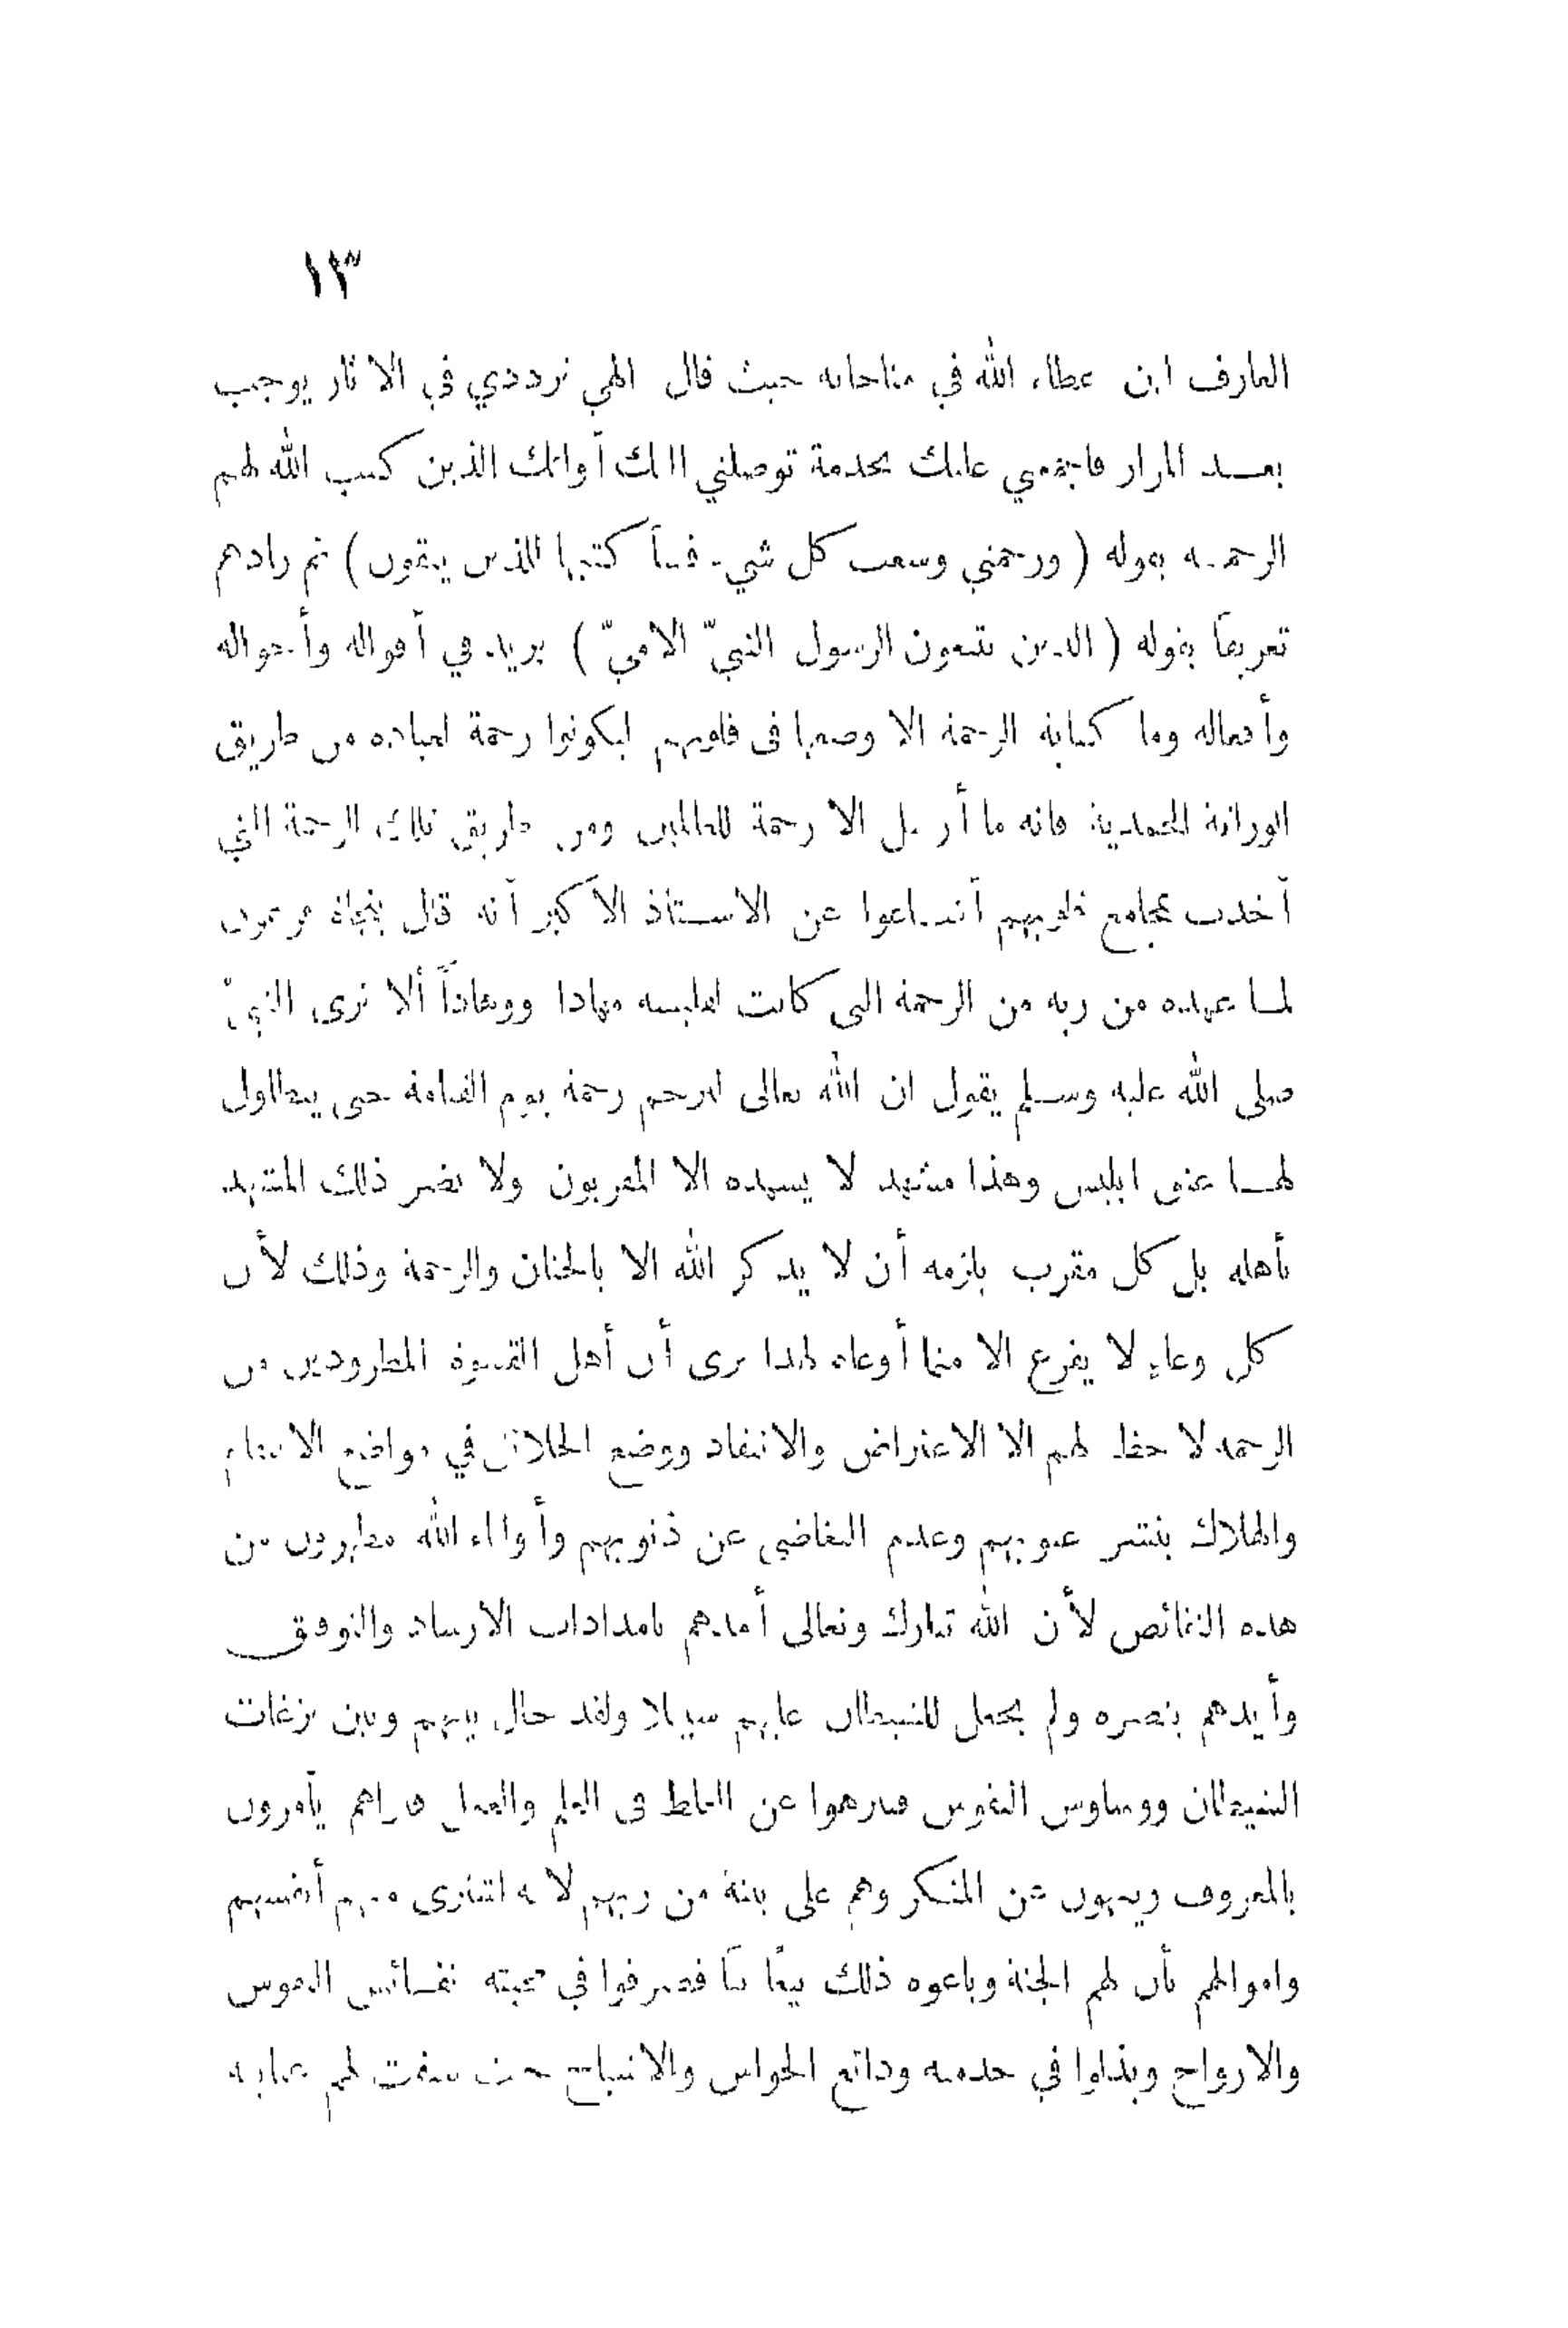 ١٣
العارف ابن عطاء الله في مناجاته حيث قال الهي ترددي في الآثار يوجب
بعد المزار فاجمعني عليك بخدمة توصلني اليك أولئك الذين كتب الله لهم
الرحمة بقوله ( ورحمتي وسعت كل شيء فسأ كتبها للذين يتقون ) ثم زادهم
تعريفاً بقوله ( الذين يتبعون الرسول النبيّ الاميّ ) يريد في أقواله وأحواله
وأفعاله وما كتابة الرحمة الا وضعها فى قلوبهم ليكونوا رحمة لعباده من طريق
الوراثة المحمدية فانه ما أرسل الا رحمة للعالمين ومن طريق تلك الرحمة التي
أخذت بمجامع قلوبهم أشاعوا عن الاستاذ الأكبر أنه قال بنجاة فرعون
لما عهده من ربه من الرحمة التى كانت مهادا ألا ترى النبيّ
صلى الله عليه وسلم يقول ان الله تعالى ليرحم رحمة يوم القيامة حتى يتطاول
لها عنق ابليس وهذا مشهد لا يشهده الا المقربون ولا يضر ذلك المشهد
بأهله بل كل مقرب يلزمه أن لا يذكر الله الا بالحنان والرحمة وذلك لأن
كل وعاء لا يفرغ الا مما أوعاه لهذا نرى أن أهل القسوة المطرودين من
الرحمة لا حظ لهم الا الاعتراض والانتقاد ووضع الخلائق في مواضع الانتقام
والهلاك بنشر عيوبهم وعدم التغاضي عن ذنوبهم وأولياء الله مطهرون من
هذه النقائص لأن الله تبارك وتعالى أمدهم بامدادات الارشاد والتوفيق
وأيدهم بنصره ولم يجعل للشيطان عليهم سبيلا ولقد حال بينهم وبين نزغات
الشيطان ووساوس النفوس فتنزهوا عن الغلط فى العلم والعمل فتراهم يأمرون
بالمعروف وينهون عن المنكر وهم على بينة من ربهم لأنه اشترى منهم أنفسهم
واموالهم بأن لهم الجنة وباعوه ذلك بيعًا بتاً فصرفوا في محبته نفائس النفوس
والارواح وبذلوا في خدمته ودائع الحواس والاشباح حيث سبقت لهم عنايه